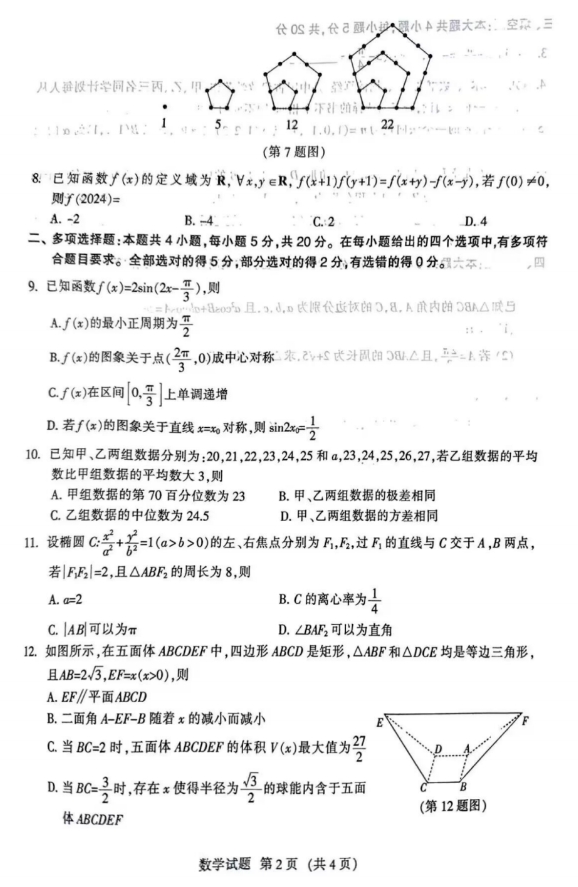 1
5
12
22
(第 7 题图)
8. 已知函数 f(x)的定义域为 R, ∀x,y∈R, f(x+1)f(y+1)=f(x+y)-f(x-y),若 f(0)≠0,
则 f(2024)=
A. -2 B. -4 C. 2 D. 4
二、多项选择题:本题共 4 小题,每小题 5 分,共 20 分。在每小题给出的四个选项中,有多项符
合题目要求。全部选对的得 5 分,部分选对的得 2 分,有选错的得 0 分。
9. 已知函数 f(x)=2sin(2x-π/3),则
A. f(x)的最小正周期为 π/2
B. f(x)的图象关于点(2π/3,0)成中心对称
C. f(x)在区间[0,π/3]上单调递增
D. 若 f(x)的图象关于直线 x=x₀ 对称,则 sin2x₀=1/2
10. 已知甲、乙两组数据分别为:20,21,22,23,24,25 和 a,23,24,25,26,27,若乙组数据的平均
数比甲组数据的平均数大 3,则
A. 甲组数据的第 70 百分位数为 23 B. 甲、乙两组数据的极差相同
C. 乙组数据的中位数为 24.5 D. 甲、乙两组数据的方差相同
11. 设椭圆 C:x²/a²+y²/b²=1(a>b>0)的左、右焦点分别为 F₁,F₂,过 F₁ 的直线与 C 交于 A,B 两点,
若|F₁F₂|=2,且△ABF₂ 的周长为 8,则
A. a=2 B. C 的离心率为 1/4
C. |AB|可以为π D. ∠BAF₂ 可以为直角
12. 如图所示,在五面体 ABCDEF 中,四边形 ABCD 是矩形,△ABF 和△DCE 均是等边三角形,
且AB=2√3,EF=x(x>0),则
A. EF∥平面 ABCD
B. 二面角 A-EF-B 随着 x 的减小而减小
C. 当 BC=2 时,五面体 ABCDEF 的体积 V(x)最大值为 27/2
D. 当 BC=3/2 时,存在 x 使得半径为 √3/2 的球能内含于五面
体 ABCDEF
E
F
D
A
C
B
(第 12 题图)
数学试题 第 2 页 (共 4 页)